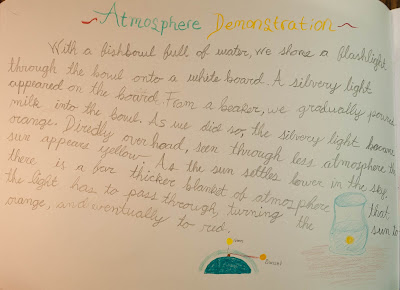 Atmosphere Demonstration
With a fishbowl full of water, we shone a flashlight
through the bowl onto a white board. A silvery light
appeared on the board. From a beaker, we gradually poured
milk into the bowl. As we did so, the silvery light became
orange. Directly overhead, seen through less atmosphere the
sun appears yellow. As the sun settles lower in the sky,
there is a far thicker blanket of atmosphere that
the light has to pass through, turning the sun to
orange, and eventually to red.